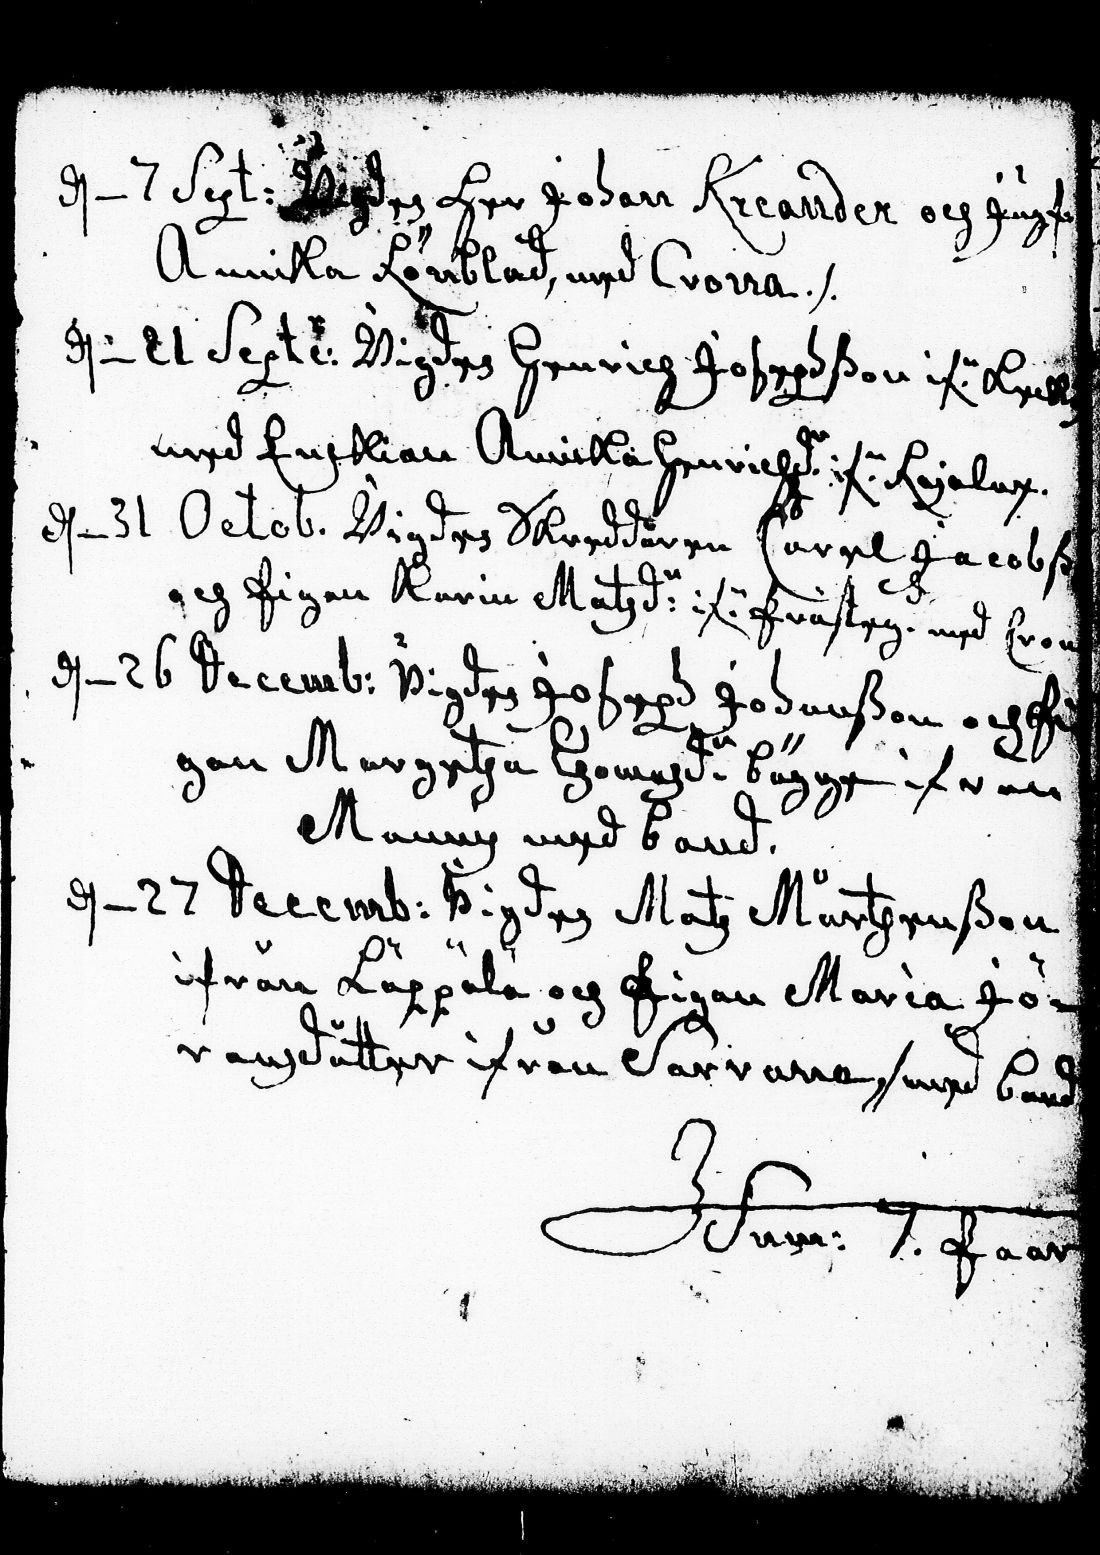 d – 7 Sept: Vigdes Her Johan Kreander och Jungf
Annika Lönblad, med Crona ./.
d – 21 Septr: Vigdes Henrich Josephßon ifn
med Enkkian Annika Henrichsdr ifn Kajalax.
d – 31 Octob. Vigdes Skreddaren Carel Jacobß
och Pigan Karin Matzdr: ifn Präst med Cron
d – 26 Decemb: Vigdes Joseph Johanßon och Pi
gan Margetha Thomasdr bägge ifrån
med band.
d – 27 Decemb: Vigdes Matz Mårthenßon
ifrån Läppälä och Pigan Maria Jö-
ransdåtter ifrån Sarvana, med band
Sum: 7. Paar